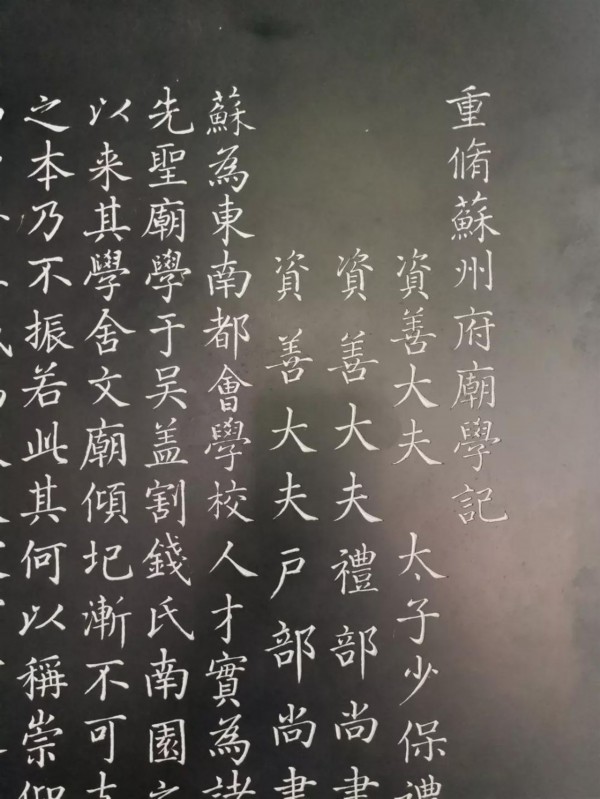 重脩蘇州府廟學記
資善大夫 太子少保禮
資善大夫禮部尚書
資善大夫戸部尚書
蘇為東南都會學校人才實為諸
先聖廟學于吴盖割錢氏南園之
以来其學舍文廟傾圮漸不可支
之本乃不振若此其何以稱崇仰